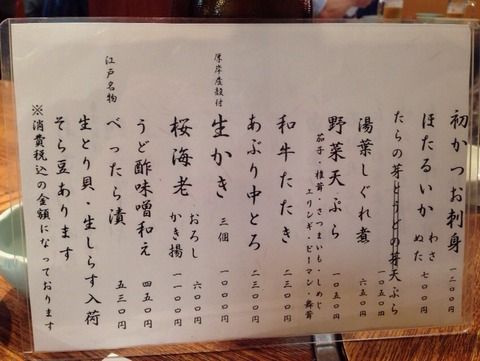 初かつお刺身 一二〇〇円
ほたるいか わさ ぬた 七〇〇円
たらの芽とうどの芽天ぷら 一〇五〇円
湯葉しぐれ煮 六五〇円
野菜天ぷら 一〇五〇円
茄子・椎茸・さつまいも・しめじ
エリンギ・ピーマン・舞茸
和牛たたき 二三〇〇円
あぶり中とろ 二三〇〇円
厚岸産殻付
生かき 三個 一〇〇〇円
桜海老 おろし 六〇〇円
かき揚 一一〇〇円
うど酢味噌和え 四五〇円
江戸名物
べったら漬 五三〇円
生とり貝・生しらす入荷
そら豆あります
※消費税込の金額になっております